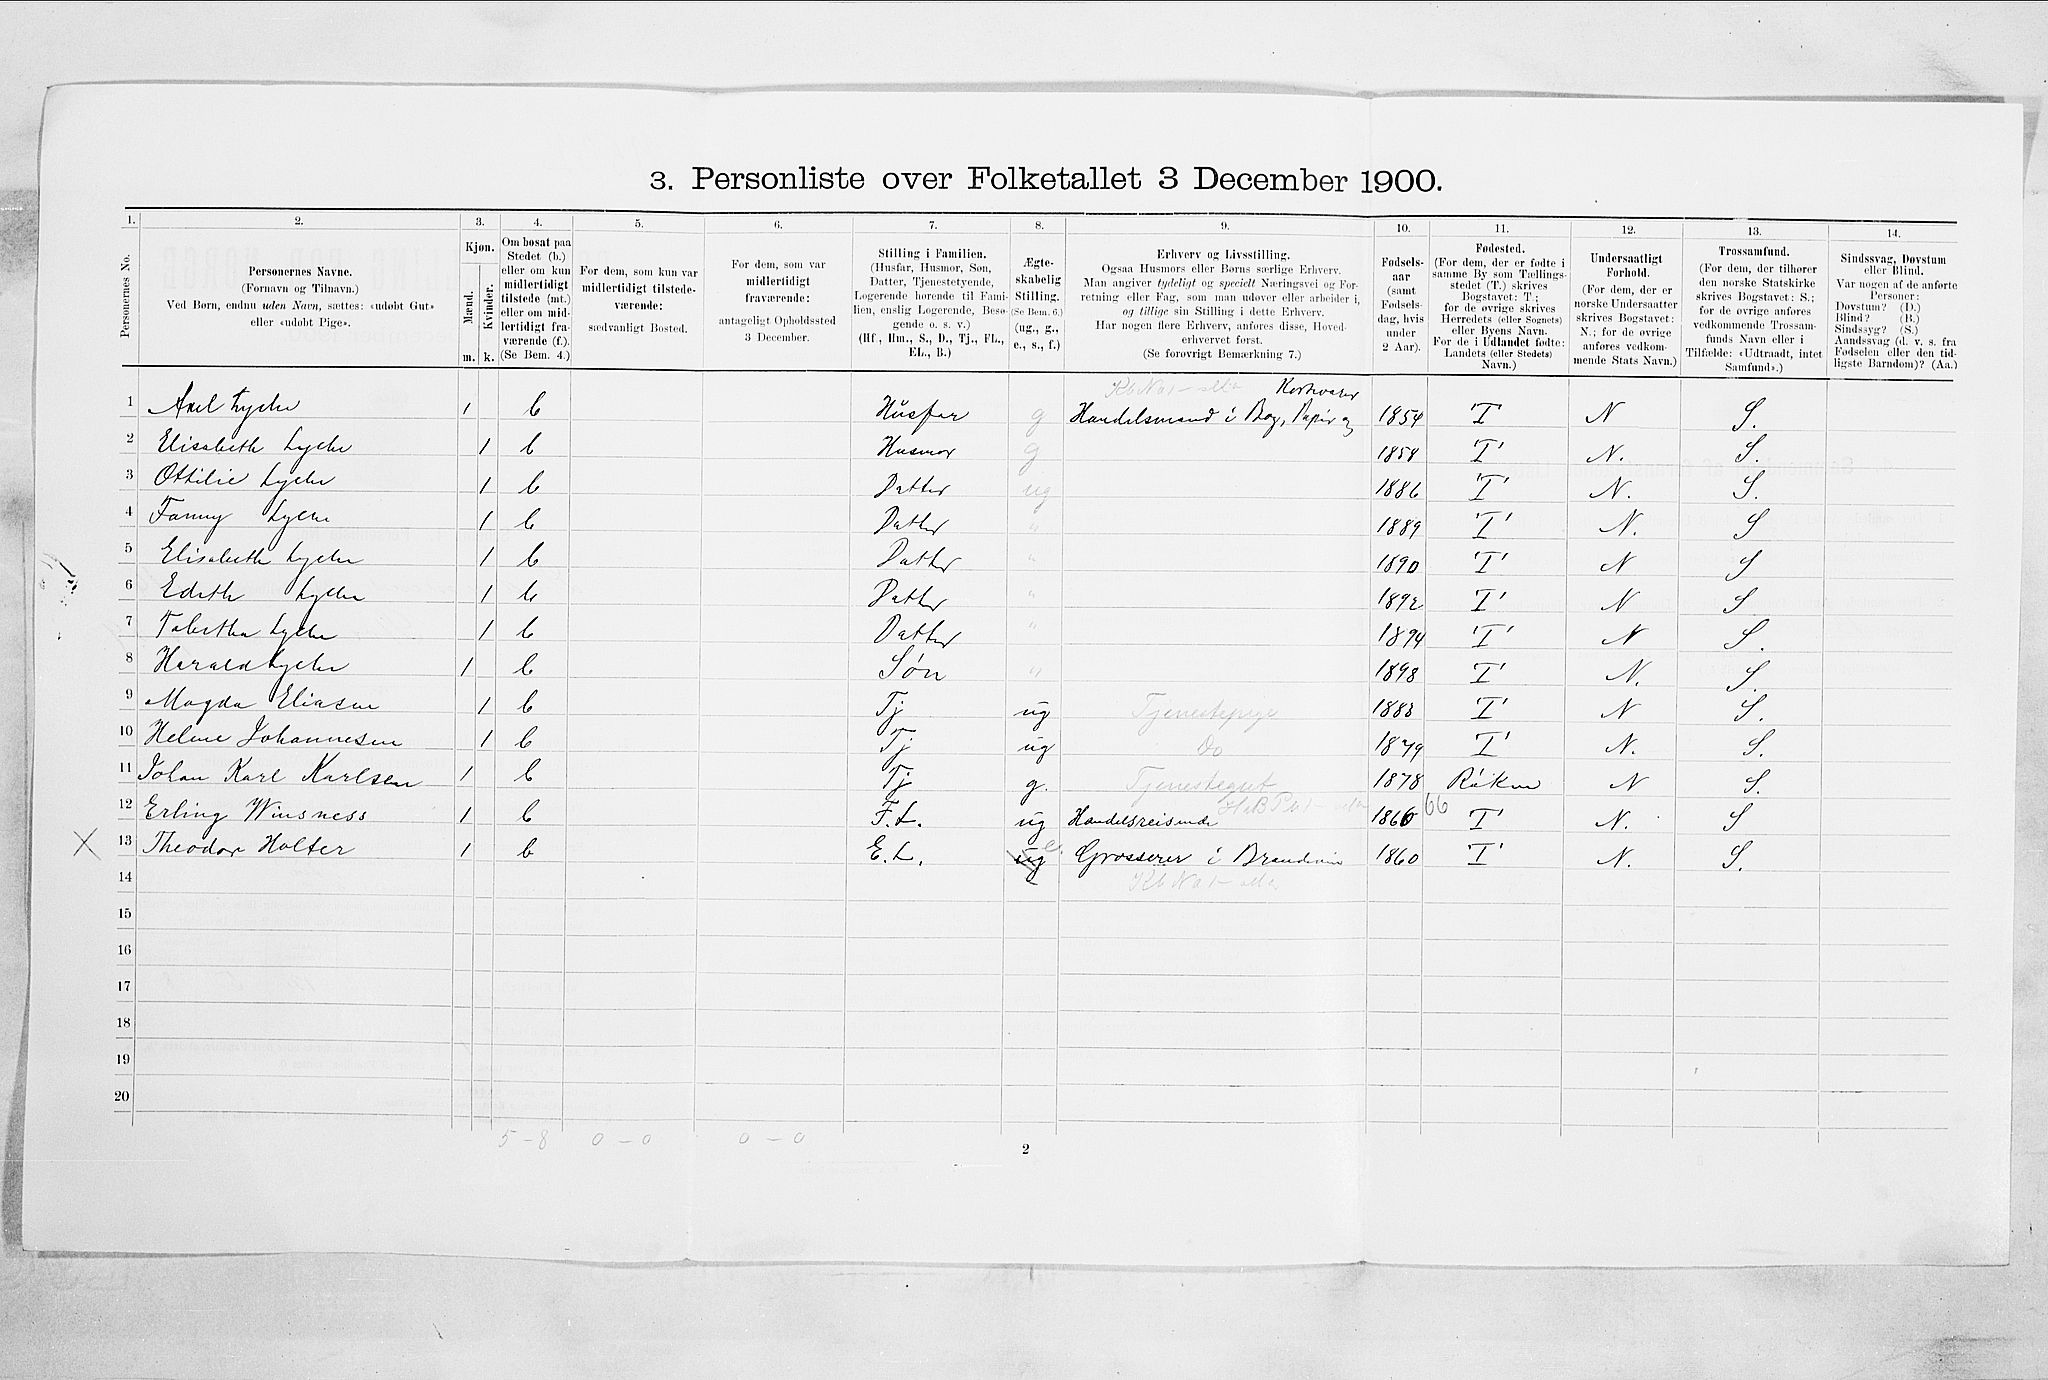 3. Personliste over Folketallet 3 December 1900.
1. 2. 3. 4. 5. 6. 7. 8. 9. 10. 11. 12. 13. 14.
Personernes No.
Personernes Navne.
(Fornavn og Tilnavn.)
Ved Børn, endnu uden Navn, sættes: «udøbt Gut»
eller «udøbt Pige».
Kjøn.
Mænd. Kvinder.
m. k.
Om bosat paa
Stedet (b.)
eller om kun
midlertidigt
tilstede (mt.)
eller om mid-
lertidigt fra-
værende (f.).
(Se Bem. 4.)
For dem, som kun var
midlertidigt tilstede-
værende:
sædvanligt Bosted.
For dem, som var
midlertidigt
fraværende:
antageligt Opholdssted
3 December.
Stilling i Familien.
(Husfar, Husmor, Søn,
Datter, Tjenestetyende,
Logerende hørende til Fami-
lien, enslig Logerende, Besø-
gende o. s. v.)
(Hf., Hm., S., D., Tj., FL.,
EL., B.)
Ægte-
skabelig
Stilling.
(Se Bem. 6.)
(ug., g.,
e., s., f.)
Erhverv og Livsstilling.
Ogsaa Husmors eller Børns særlige Erhverv.
Man angiver tydeligt og specielt Næringsvei og For-
retning eller Fag, som man udøver eller arbeider i,
og tillige sin Stilling i dette Erhverv.
Har nogen flere Erhverv, anføres disse, Hoved-
erhvervet først.
(Se forøvrigt Bemærkning 7.)
Fødsels-
aar
(samt
Fødsels-
dag, hvis
under
2 Aar).
Fødested.
(For dem, der er fødte i
samme By som Tællings-
stedet (T.) skrives
Bogstavet: T.;
for de øvrige skrives
Herredets (eller Sognets)
eller Byens Navn.
For de i Udlandet fødte:
Landets (eller Stedets)
Navn.)
Undersaatligt
Forhold.
(For dem, der er
norske Undersaatter
skrives Bogstavet:
N.; for de øvrige
anføres vedkom-
mende Stats Navn.)
Trossamfund.
(For dem, der tilhører
den norske Statskirke
skrives Bogstavet: S.;
for de øvrige anføres
vedkommende Trossam-
funds Navn eller i
Tilfælde: «Udtraadt, intet
Samfund».)
Sindssvag, Døvstum
eller Blind.
Var nogen af de anførte
Personer:
Døvstum? (D.)
Blind? (B.)
Sindssyg? (S.)
Aandssvag (d. v. s. fra
Fødselen eller den tid-
ligste Barndom)? (Aa.)
1 Axel Lyche 1 b Husfar g Handelsmand i Bog, Papir og Kortvarer 1854 T N S.
2 Elisabeth Lyche 1 b Husmor g 1858 T N. S.
3 Ottilie Lyche 1 b Datter ug 1886 T N. S.
4 Fanny Lyche 1 b Datter " 1889 T N. S
5 Elisabeth Lyche 1 b Datter " 1890 T N S
6 Edith Lyche 1 b Datter " 1892 T N S
7 Tabitha Lyche 1 b Datter " 1894 T N S.
8 Harald Lyche 1 b Søn " 1898 T N. S.
9 Magda Eliasen 1 b Tj ug Tjenestepige 1883 T N S.
10 Helene Johannesen 1 b Tj ug Do 1879 T N. S.
11 Johan Karl Karlsen 1 b Tj g. Tjenestegut 1878 Røken N S.
12 Erling Winsness 1 b F.L. ug Handelsreisende 1866 66 T N. S
X 13 Theodor Holter 1 b E.L. ug e. Grosserer i Brændevin 1860 T N. S.
14
15
16
17
18
19
20
5 – 8 0 – 0 0 – 0
2